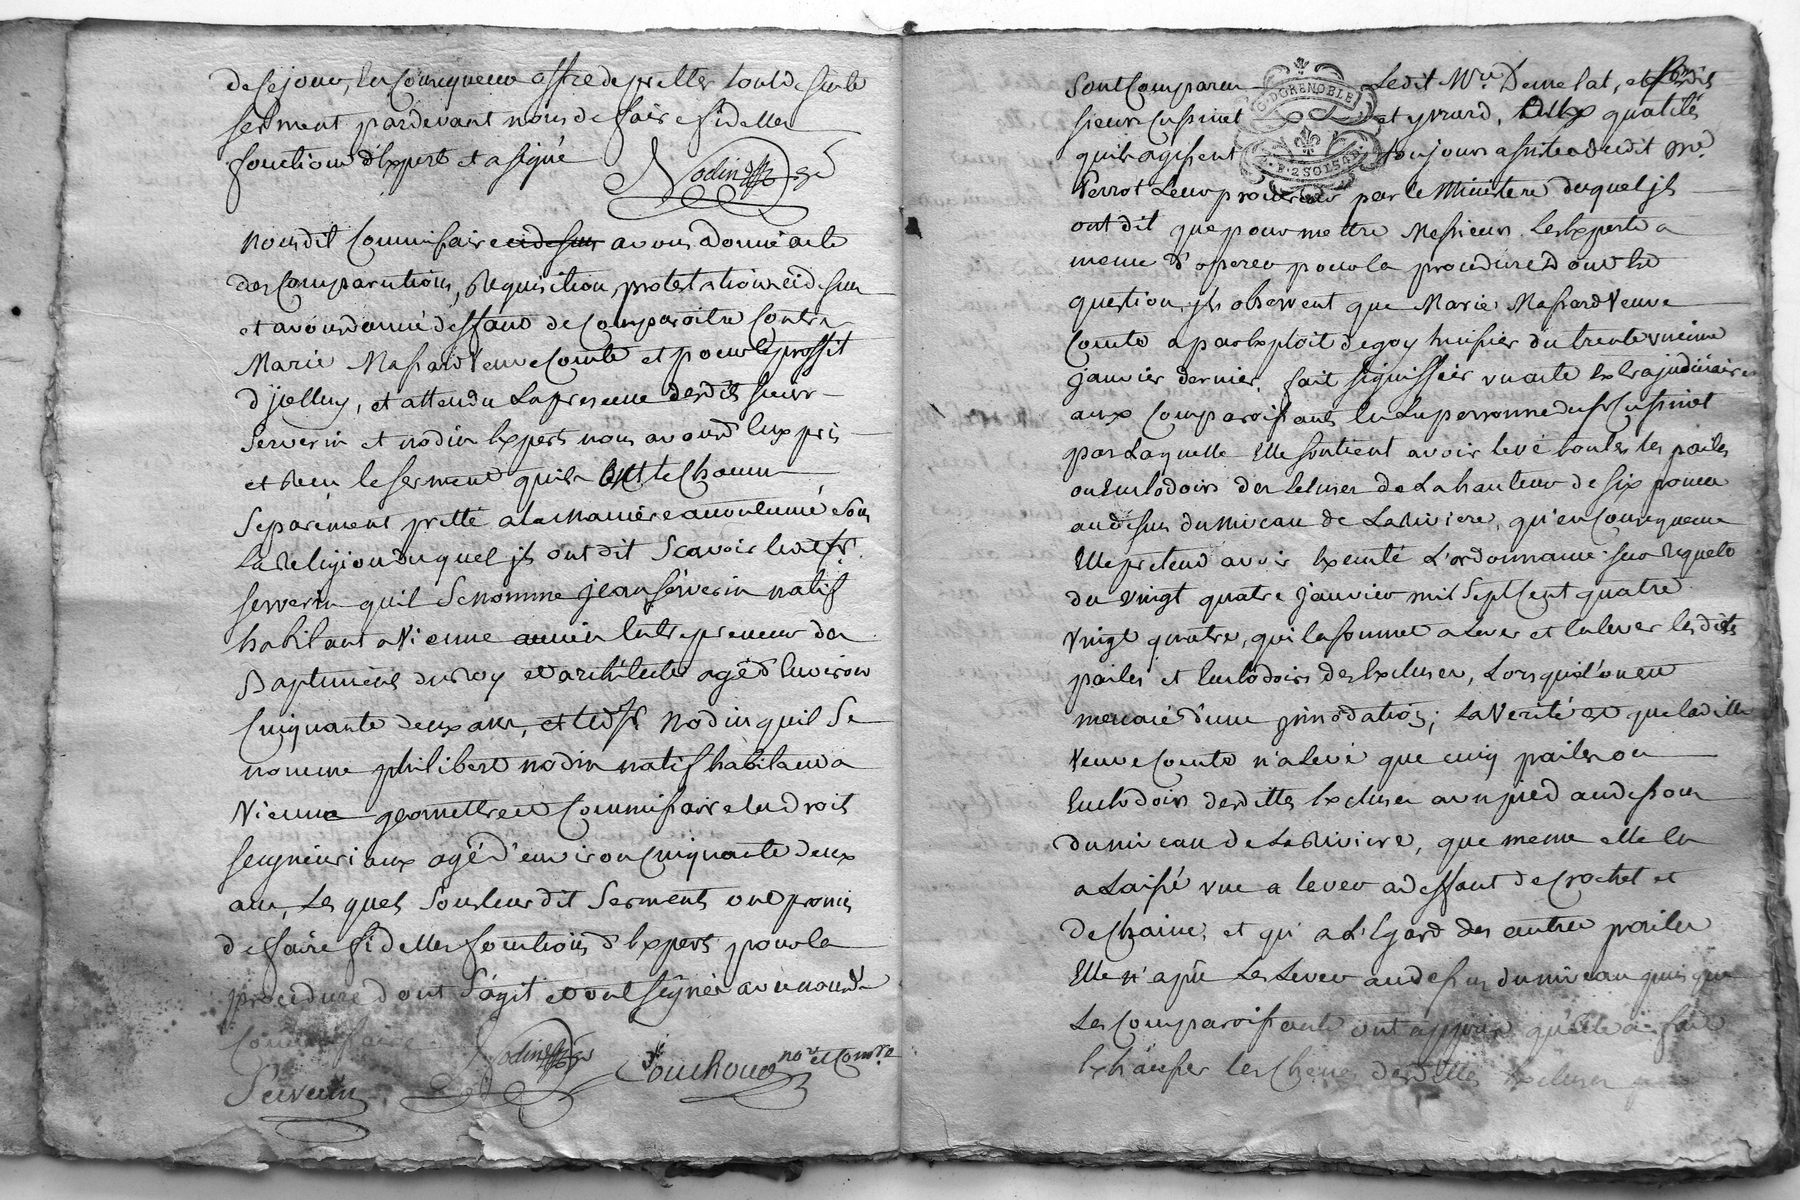 de sejour, En Consequence offre de pretter tout de suitte
serment pardevant nous de faire fidelles
fonctions d'Expert et a signé Nodin
Nous dit Commissaire cidessus avons donné acte
des Comparutions, Requisition, protestations cidessus
et avons donné deffaut de Comparoitre Contre
Marie Massard Veuve Comte et pour le proffit
d'jcelluy, et attendu La presence desdits sieurs
Serverin et nodin Experts nous avons d'Eux pris
et Reçu le serment qu'ils ont Chacun
Separement pretté a la maniere accoutumé Sous
La Religion duquel jls ont dit Scavoir Ledit sr.
serverin quil Se nomme jean serverin natif
habitant a Vienne ancien Entrepreneur des
Baptiments du Roy et architecte agé d'Environ
Cinquante deux ans, et Ledt sr Nodin quil Se
nomme philibert nodin natif habitant a
Vienne geomettre et Commissaire En droits
seigneuriaux agé d'environ Cinquante deux
ans, Lesquels Sous leurdit Serments ont promis
de faire fidelles fonctions d'Experts pour la
procedure dont S'agit et ont signés avec nous dt
Commissaire
Serverin Nodin nore et Comre
Sont Comparus Ledit Mre. Demelat, et lesdits
G. DGRENOBLE
2 SOLS 4 D
sieurs Cussinet et yvrard, aux qualités
quils agissent toujours assistes dudit Me.
Perrot Leur procureur par le Ministere duquel jls
ont dit que pour mettre Messieurs Les Experts a
meme d'operer pour la procedure dont Est
question, jls observent que Marie Massard Veuve
Comte a par Exploit de goy huissier du trente unieme
janvier dernier, fait signiffier un acte Extrajudiciaire
aux Comparoissants En La personne du sr Cussinet
par Laquelle Elle soutient avoir levé toutes les pailes
ou Emlodoirs des Ecluses de La hauteur de six pouces
audessus du niveau de La Riviere, qu'en Consequence
Elle pretend avoir Executé L'ordonnance sur Requete
du vingt quatre janvier mil Sept Cent quatre
vingt quatre, qui la somme a Lever et Enlever lesdits
pailes et Emlodoirs des Excluses, Lorsquil'on est
menacé d'une jnnodation; La Verité est que laditte
Veuve Comte n'a Levé que cinq pailes ou
Emlodoirs desdittes Excluses a un pied audessous
du niveau de La Riviere, que meme elle En
a Laissé une a lever a deffaut de Crochet et
de Chaine; et qu'a L'Egard des autres pailes
Elle n'a pû Les Lever audessus du niveau puis que
Les Comparoissants ont appris qu'Elle a fait
Exhausser les desdittes Excluses